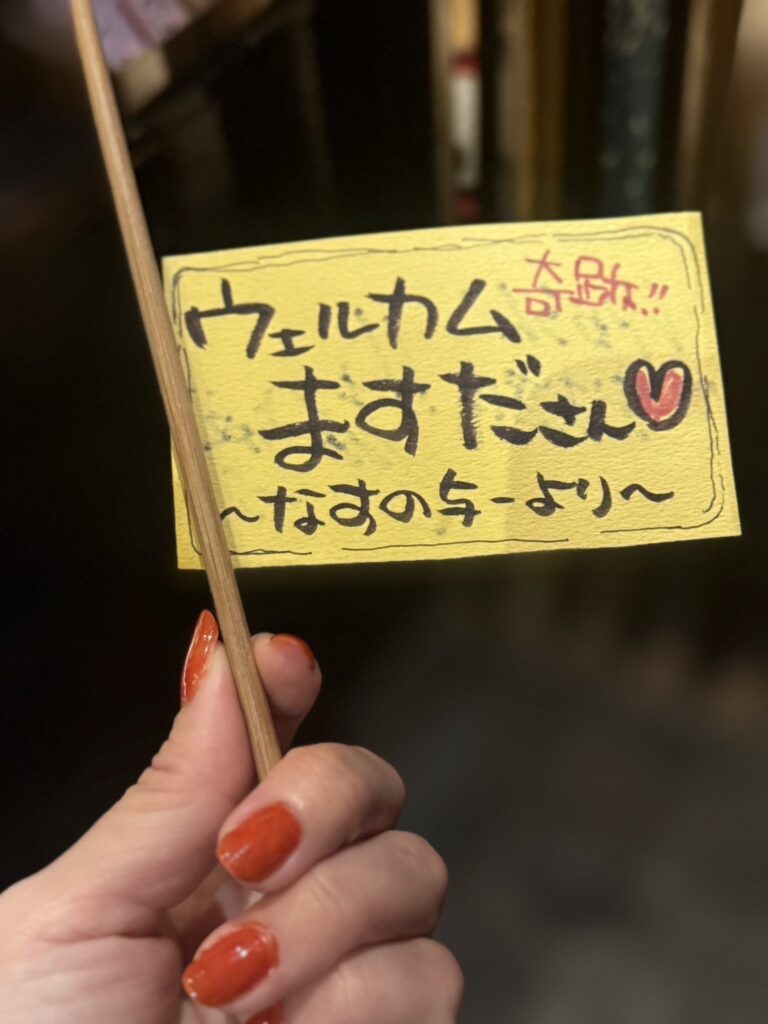 ウェルカム 奇跡!!
ますださん
~なすの与一より~